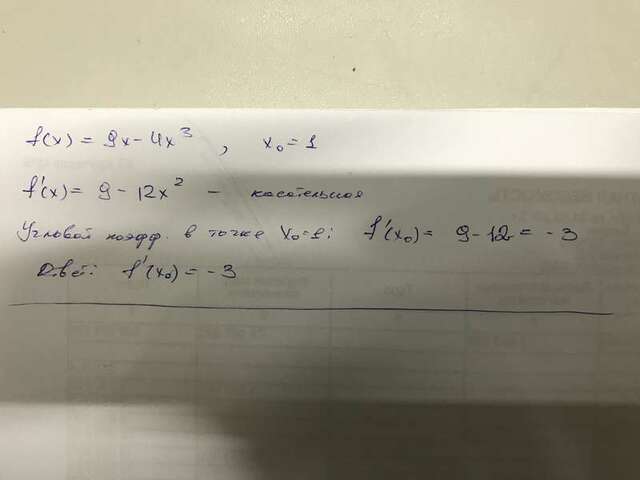 f(x) = 9x - 4x³, x₀ = 1
f'(x) = 9 - 12x² - касательная
Угловой коэфф. в точке x₀=1: f'(x₀) = 9 - 12 = -3
Ответ: f'(x₀) = -3